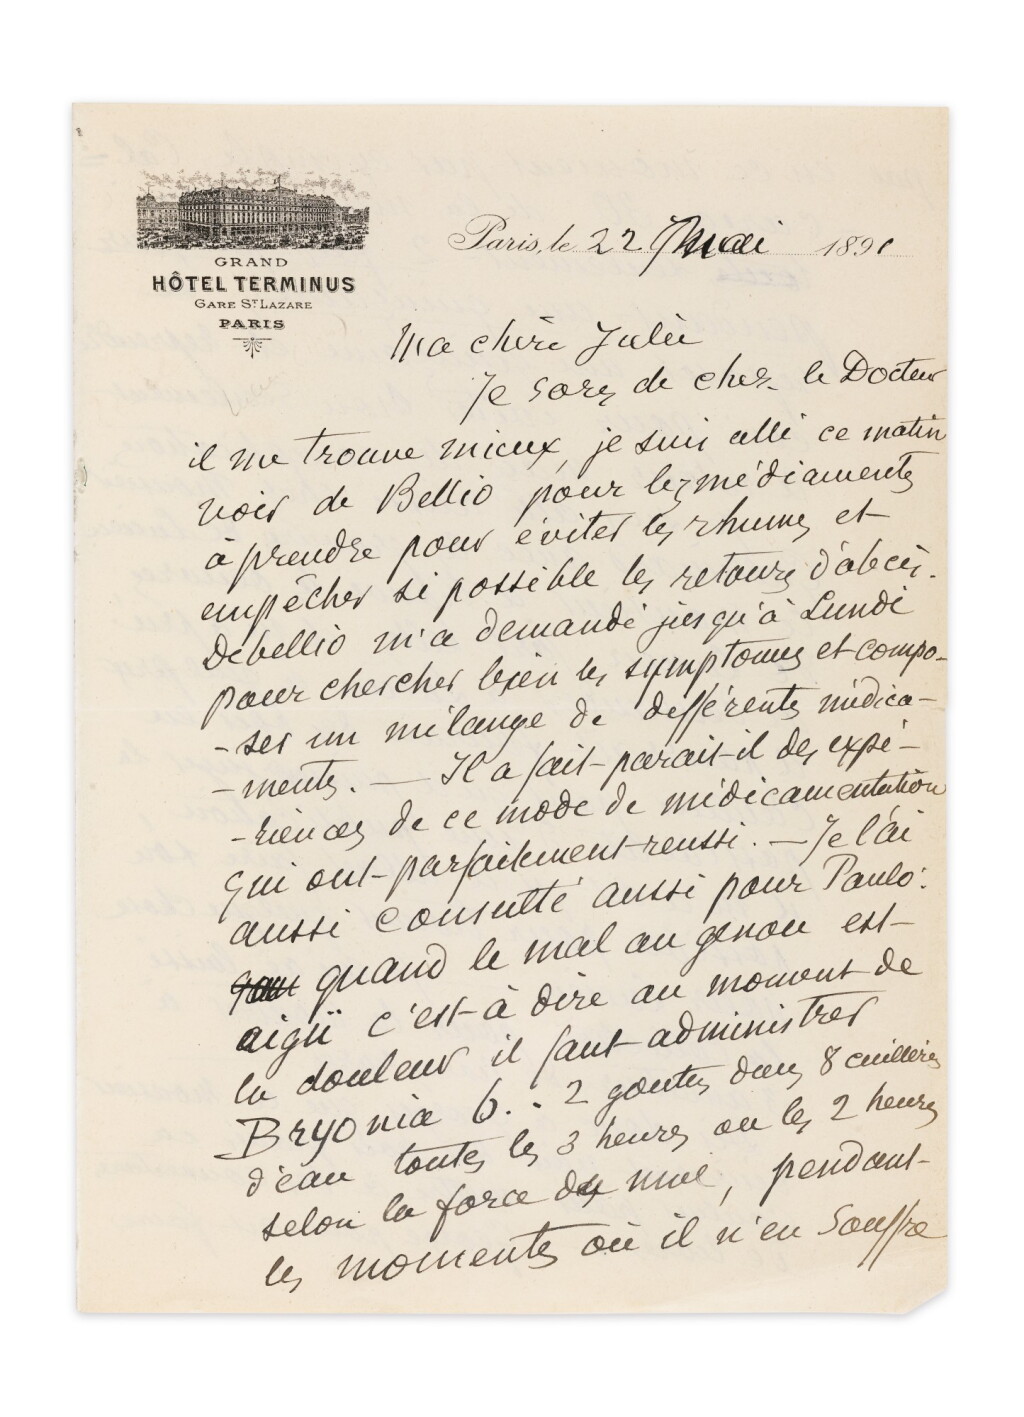 GRAND
HÔTEL TERMINUS
GARE ST LAZARE
PARIS
Paris, le 22 Mai 1891
Ma chère Julie
Je sors de chez le Docteur
il me trouve mieux, je suis allé ce matin
voir de Bellio pour les médiaments
à prendre pour éviter les rhumes et
empêcher si possible les retours d'abcès.
Debellio m'a demandé jusqu'à Lundi
pour chercher bien les symptomes et compo-
-ser un mélange de différents médica-
-ments. — Il a fait parait-il des expé-
-riences de ce mode de médicamentation
qui ont parfaitement reussi. — Je l'ai
aussi consulté aussi pour Paulo:
quand le mal au genou est
aigü c'est à dire au moment de
la douleur il faut administrer
Bryonia 6.. 2 goutes dans 8 cuillères
d'eau toutes les 3 heures ou les 2 heures
selon la force du mal, pendant
les moments où il n'en souffre